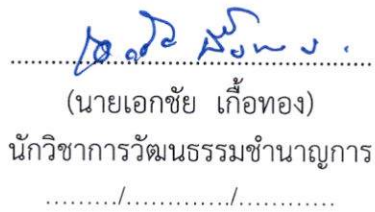 (นายเอกชัย เกื้อทอง)
นักวิชาการวัฒนธรรมชำนาญการ
........./............/............